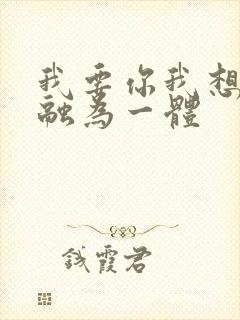 我要你我想
融為一體
錢霞君